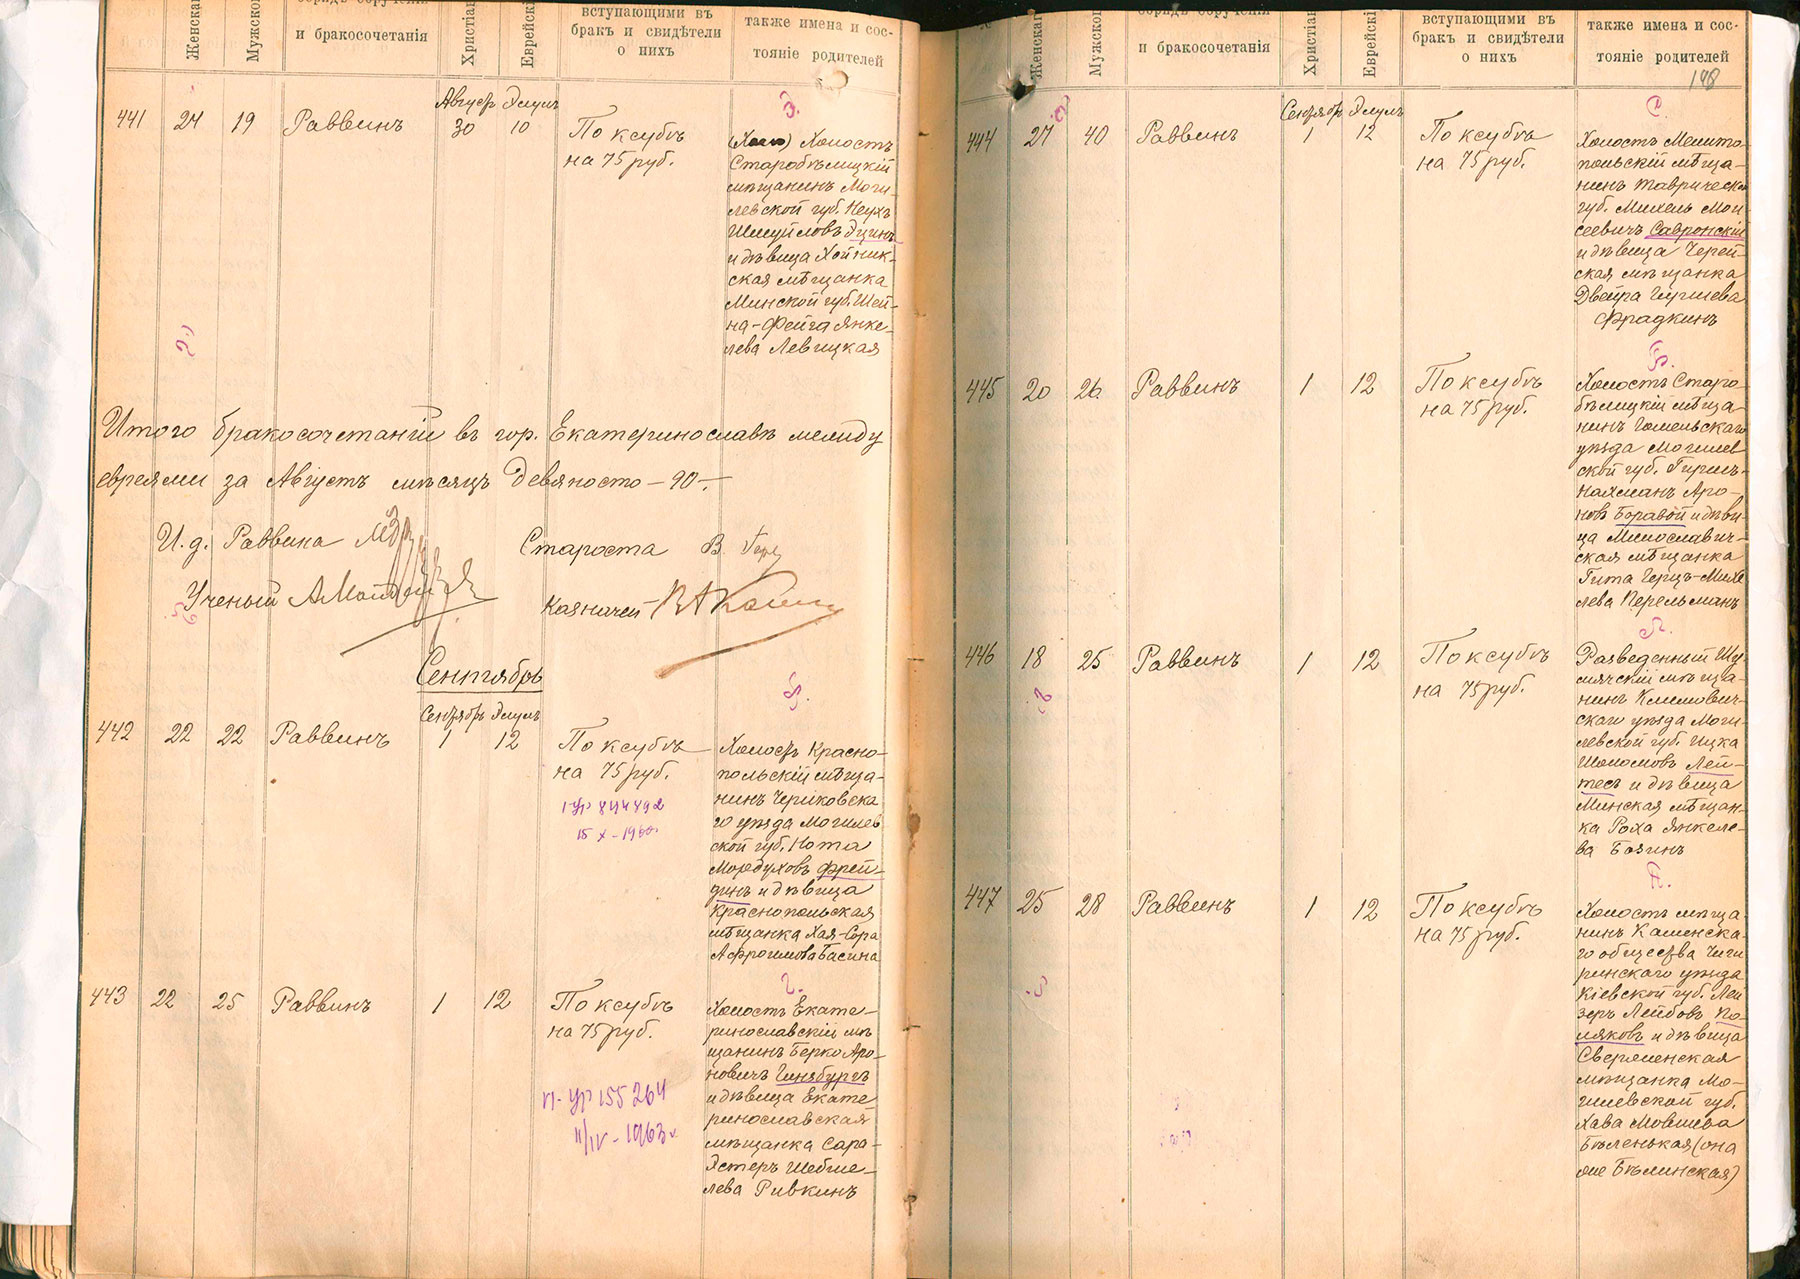 Женска
Мужско
и бракосочетанія
Христіа
Еврейскі
вступающими въ
бракъ и свидѣтели
о нихъ
также имена и сос-
тояніе родителей
Август Элулъ
441 24 19 Раввинъ 30 10 По ксубѣ
на 75 руб.
Э.
Холостъ
Старобѣлицкій
мѣщанинъ Моги-
левской губ. Неухъ
Шмуйловъ Эцинъ
и дѣвица Хойник-
ская мѣщанка
Минской губ. Шей-
на-Фейга Янке-
лева Левицкая
Итого бракосочетаній въ гор. Екатеринославѣ между
евреями за Августъ мѣсяцъ девяносто - 90 -.
И. д. Раввина
Староста В.
Ученый
Казначей
Сентябрь
Сентябрь Элулъ
442 22 22 Раввинъ 1 12 По ксубѣ
на 75 руб.
15 X - 1960.
Ф.
Холостъ Красно-
польскій мѣща-
нинъ Чериковска
го уѣзда Могилев
ской губ. Нота
Мордуховъ Фрей-
динъ и дѣвица
Краснопольская
мѣщанка Хая-Сора
Афроимова Басина
443 22 25 Раввинъ 1 12 По ксубѣ
на 75 руб.
155264
11/IV - 1963
Г.
Холостъ Екате-
ринославскій мѣ
щанинъ Берко Аро-
новичъ Гинзбургъ
и дѣвица Екате
ринославская
мѣщанка Сара-
Эстеръ Шебше-
лева Ривкинъ
Женска
Мужско
и бракосочетанія
Христіа
Еврейскі
вступающими въ
бракъ и свидѣтели
о нихъ
также имена и сос-
тояніе родителей
148
Сентябрь Элулъ
444 27 40 Раввинъ 1 12 По ксубѣ
на 75 руб.
С.
Холостъ Мелито-
польскій мѣща-
нинъ Таврическ
губ. Михель Мои
сеевичъ Савронскій
и дѣвица Черей-
ская мѣщанка
Двейра Гиршева
Фрадкинъ
445 20 26 Раввинъ 1 12 По ксубѣ
на 75 руб.
Б.
Холостъ Старо
бѣлицкій мѣща
нинъ Гомельскаго
уѣзда Могилев
ской губ. Гиршъ-
Нахманъ Аро-
новъ Боравой и дѣви
ца Милославич-
ская мѣщанка
Гита Герцъ-Михе
лева Перельманъ
446 18 25 Раввинъ 1 12 По ксубѣ
на 75 руб.
Л.
Разведенный Шу
мячскій мѣща-
нинъ Климович-
скаго уѣзда Моги-
левской губ. Ицка
Шоломовъ Лей-
тесъ и дѣвица
Минская мѣщан-
ка Роха Янкеле-
ва Бозинъ
447 25 28 Раввинъ 1 12 По ксубѣ
на 75 руб.
П.
Холостъ мѣща
нинъ Каменска-
го общества Чиги
ринскаго уѣзда
Кіевской губ. Лей
зеръ Лейбовъ По-
ляковъ и дѣвица
Сверженская
мѣщанка Мо-
гилевской губ.
Хава Мовшева
Бѣленькая (она
же Бѣлинская)